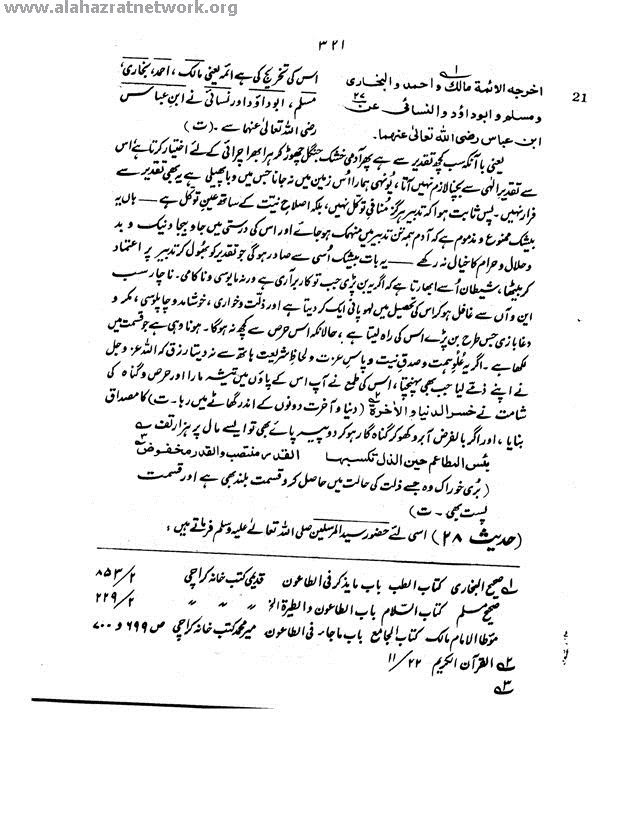 www.alahazratnetwork.org
۳۲۱
21
اخرجہ الائمۃ مالک و احمد و البخاری
و مسلم و ابوداؤد و النسائی عن
ابن عباس رضی اللہ تعالٰی عنہما۔
اس کی تخریج کی ہے ائمہ یعنی مالک ، احمد، بخاری،
مسلم ، ابوداؤد اور نسائی نے ابن عباس
رضی اللہ تعالٰی عنہما سے ۔ (ت)
یعنی باآنکہ سب کچھ تقدیر سے ہے پھر آدمی خشک جنگل چھوڑ کر ہرا بھرا چرائی کے لئے اختیار کرتا ہے اس
سے تقدیر الٰہی سے بچنا لازم نہیں آتا ، یونہی ہمارا اس زمین میں نہ جانا جس میں وبا پھیلی ہے یہ بھی تقدیر سے
فرار نہیں ۔ پس ثابت ہوا کہ تدبیر ہرگز منافی توکل نہیں ، بلکہ اصلاح نیت کے ساتھ عین توکل ہے ــــ ہاں یہ
بیشک ممنوع و مذموم ہے کہ آدمی ہمہ تن تدبیر میں منہمک ہوجائے اور اس کی درستی میں جا و بیجا و نیک و بد
و حلال و حرام کا خیال نہ رکھے ــــ یہ بات بیشک اُسی سے صادر ہوگی جو تقدیر کو بھول کر تدبیر پر اعتماد
کر بیٹھا ، شیطان اُسے ابھارتا ہے کہ اگر یہ بن پڑی جب تو کار برآری ہے ورنہ مایوسی و ناکامی ۔ ناچار سب
این و آں سے غافل ہوکر اس کی تحصیل میں لہو پانی ایک کر دیتا ہے اور ذلت و خواری ، خوشامد و چاپلوسی ، مکر و
دغابازی جس طرح بن پڑے اس کی راہ لیتا ہے ، حالانکہ اس حرص سے کچھ نہ ہوگا ۔ ہونا وہی ہے جو قسمت میں
لکھا ہے ۔ اگر یہ علو ہمت و صدق نیت و پاس عزت و لحاظ شریعت ہاتھ سے نہ دیتا رزق کہ اللہ عز و جل
نے اپنے ذمے لیا جب بھی پہنچتا ، اس کی طمع نے آپ اس کے پاؤں میں تیشہ مارا اور حرص و گناہ کی
شامت نے خسر الدنیا و الاٰخرۃ (دنیا و آخرت دونوں کے اندر گھاٹے میں رہا ۔ ت) کا مصداق
بنایا ، اور اگر بالفرض آبرو کھو کر گناہ گار ہو کر دو پیسہ پائے بھی تو ایسے مال پر ہزار تف ؎
بئس المطاعم حین الذل تکسبھا القدر منتصب والقدر مخفوض
(بُری خوراک وہ جسے ذلت کی حالت میں حاصل کرو قسمت بلند بھی ہے اور قسمت
پست بھی ۔ ت)
(حدیث ۲۸) اسی لئے حضور سید المرسلین صلی اللہ تعالٰے علیہ وسلم فرماتے ہیں :
۱ صحیح البخاری کتاب الطب باب ما یذکر فی الطاعون قدیمی کتب خانہ کراچی ۲/ ۸۵۳
صحیح مسلم کتاب السلام باب الطاعون و الطیرۃ الخ " " " ۲/ ۲۲۹
مؤطا الامام مالک کتاب الجامع باب ماجاء فی الطاعون میر محمد کتب خانہ کراچی ص ۶۹۹ و ۷۰۰
۲ القرآن الکریم ۲۲/ ۱۱
۳